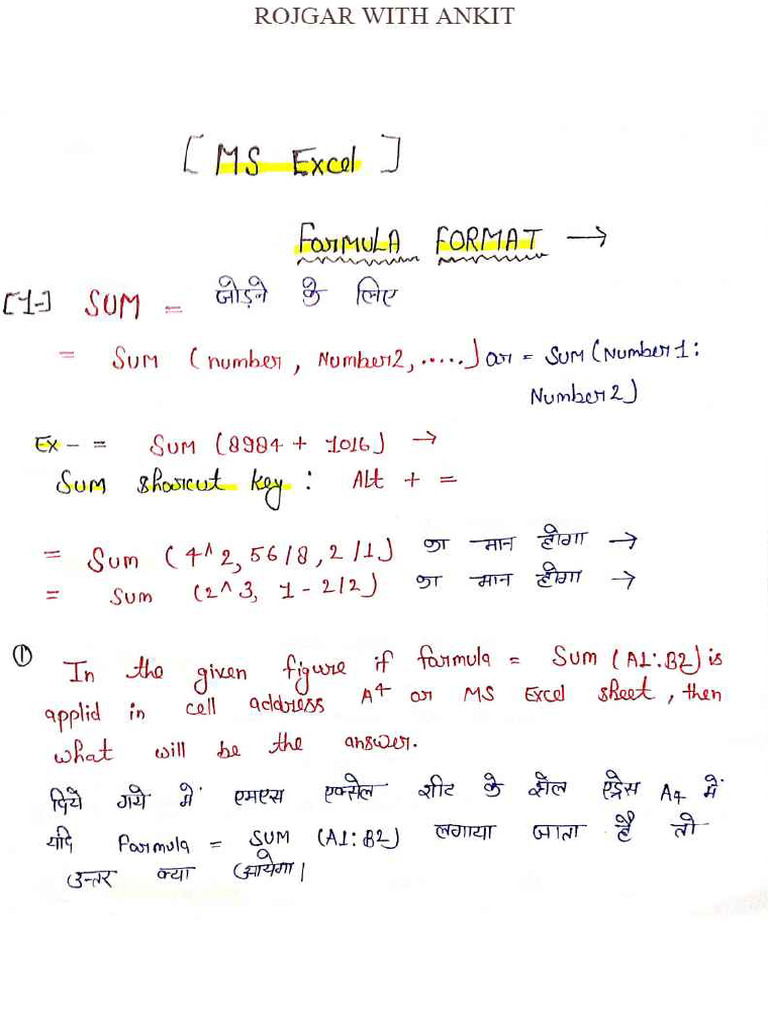 ROJGAR WITH ANKIT
[ MS Excel ]
FORMULA FORMAT →
[1-] SUM = जोड़ने के लिए
= Sum (number, Number2, .....) or = Sum (Number1:
Number2)
Ex - = Sum (8984 + 1016) →
Sum shorcut key : Alt + =
= Sum (4^2, 56/8, 2/1) का मान होगा →
= Sum (2^3, 1-2/2) का मान होगा →
① In the given figure if formula = Sum (A1:B2) is
applid in cell address A4 or MS Excel sheet, then
what will be the answer.
दिये गये में एमएस एक्सेल शीट के सेल एड्रेस A4 में
यदि Formula = SUM (A1:B2) लगाया जाता है तो
उत्तर क्या आयेगा।